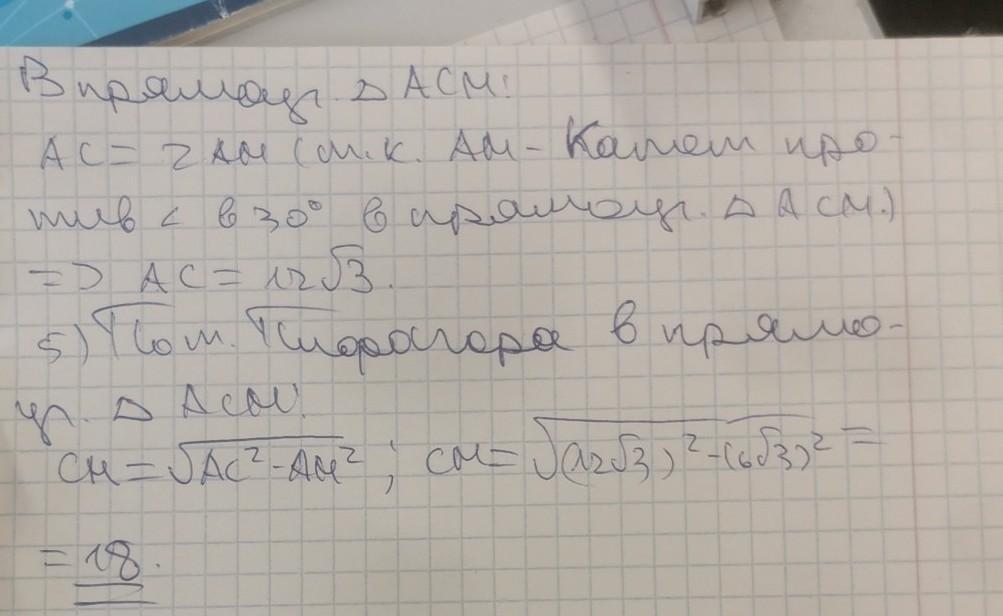 В прямоуг. △ ACM:
AC = 2AM (т.к. AM - катет про-
тив < в 30° в прямоуг. △ ACM.)
=> AC = 12√3.
5) По т. Пифагора в прямо-
уг. △ ACM:
CM = √AC² - AM² ; CM = √(12√3)² - (6√3)² =
= 18.